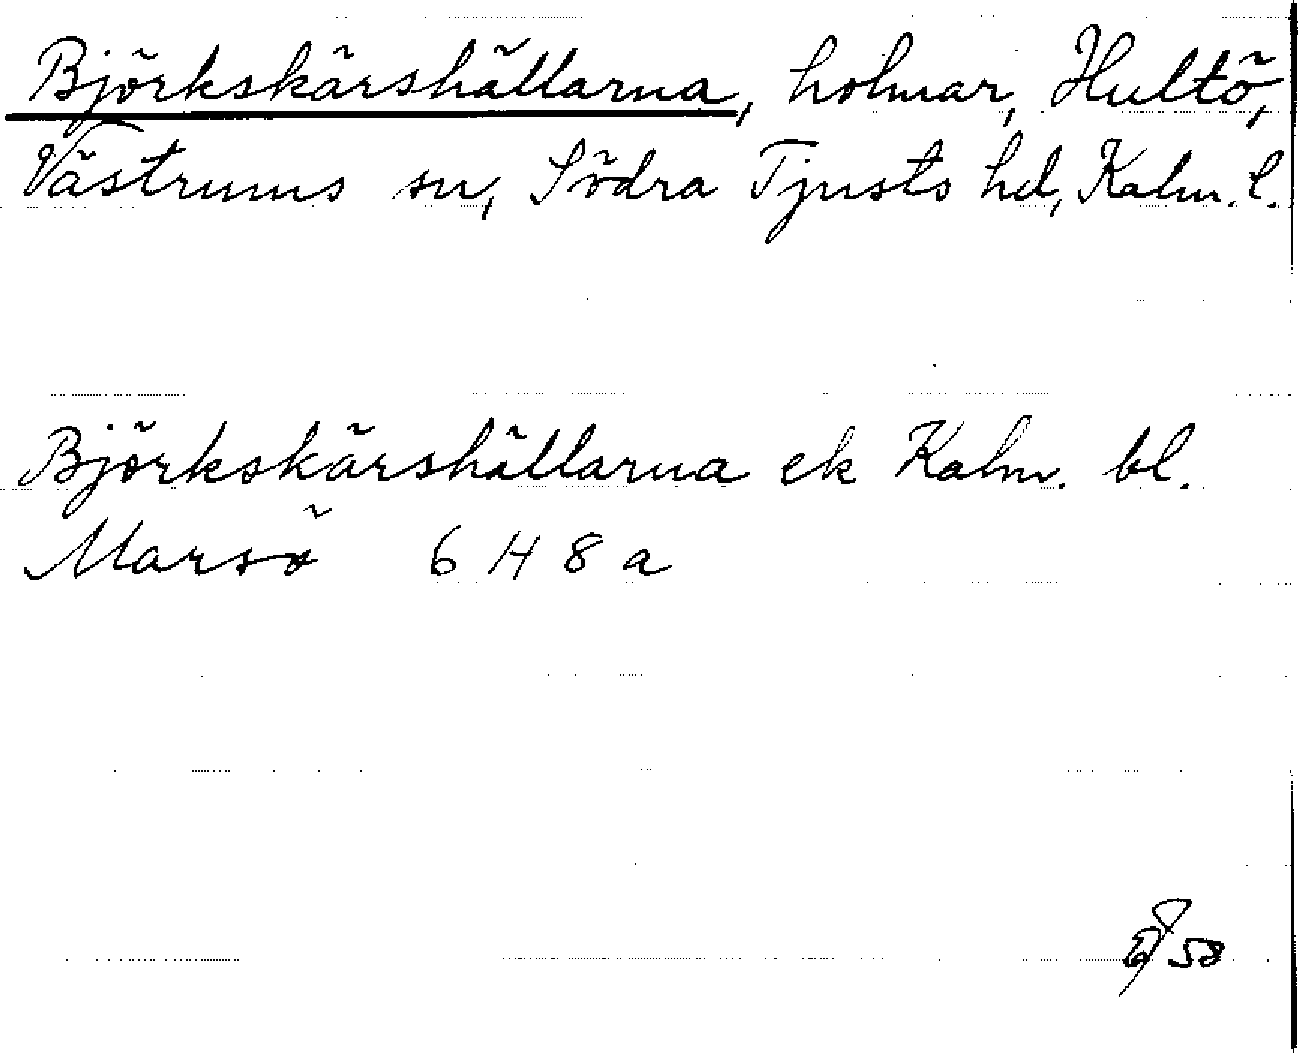 Björkskärshällarna, holmar, Hultö,
Västrums sn, Södra Tjusts hd, Kalm. l.
Björkskärshällarna ek Kalm. bl.
Marsö 6 H 8 a
58